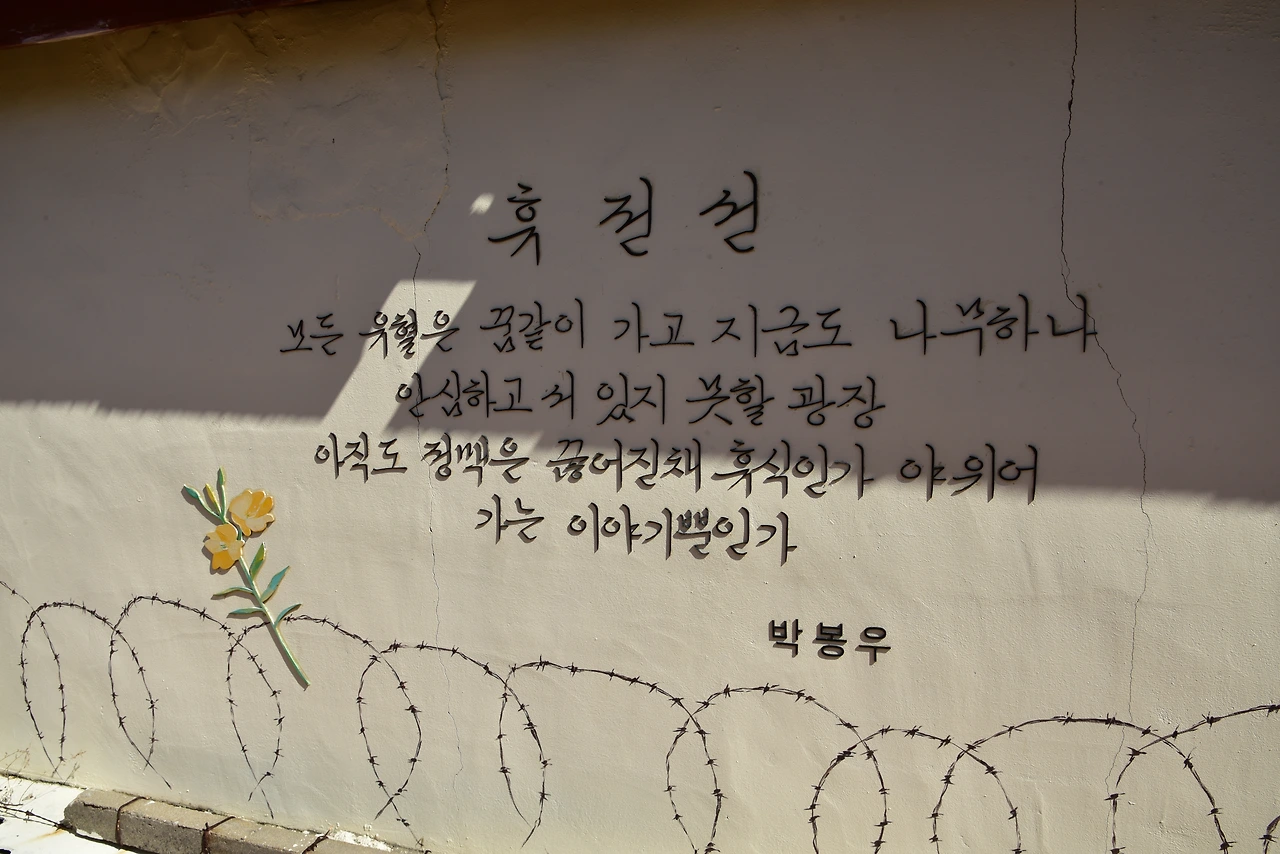 휴전선
모든 유혈은 꿈같이 가고 지금도 나무하나
안심하고 서 있지 못할 광장
아직도 정맥은 끊어진채 휴식인가 야위어
가는 이야기뿐인가
박봉우